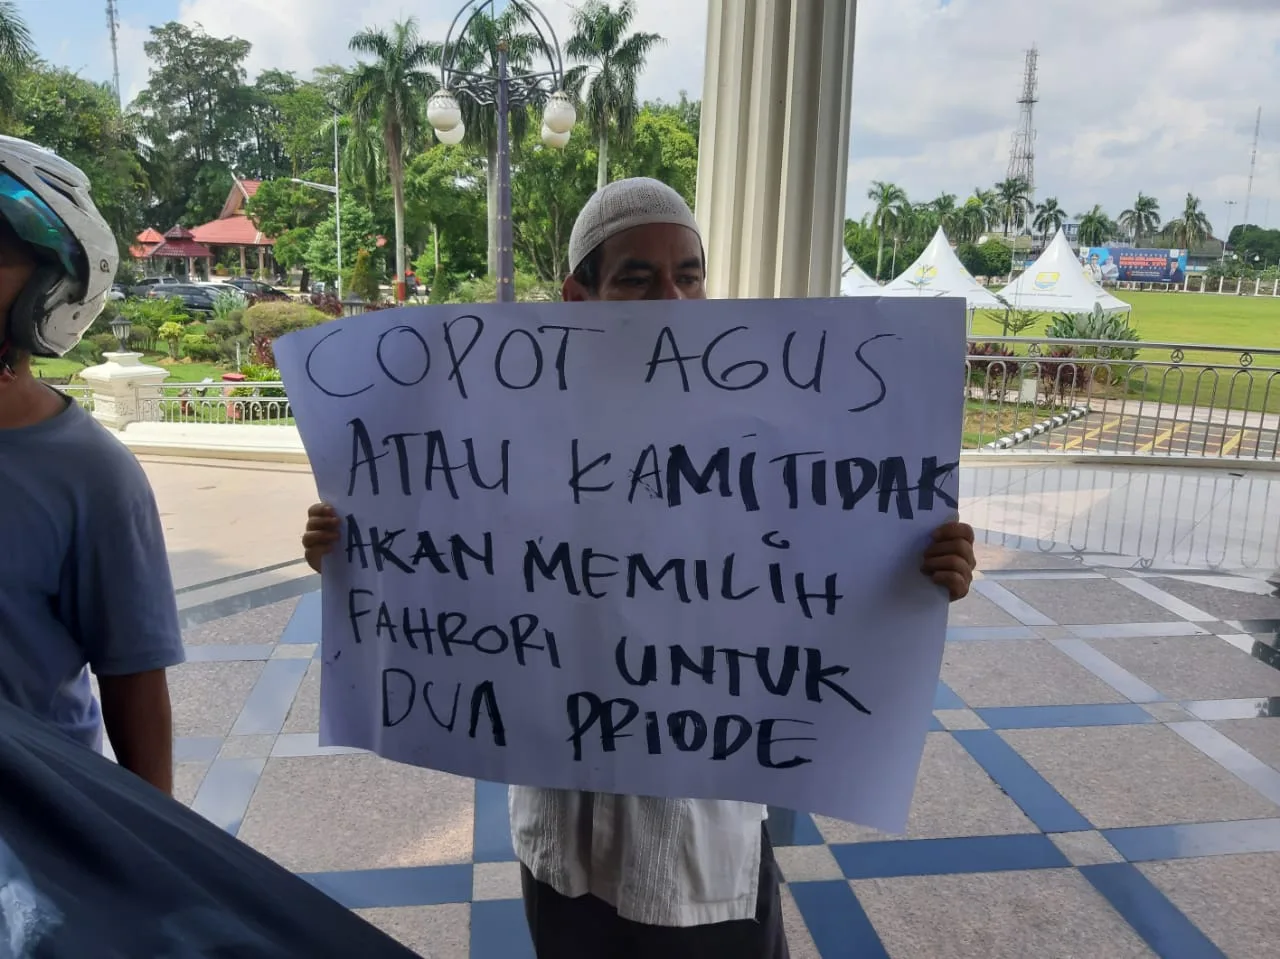 COPOT AGUS
ATAU KAMI TIDAK
AKAN MEMILIH
FAHRORI UNTUK
DUA PRIODE